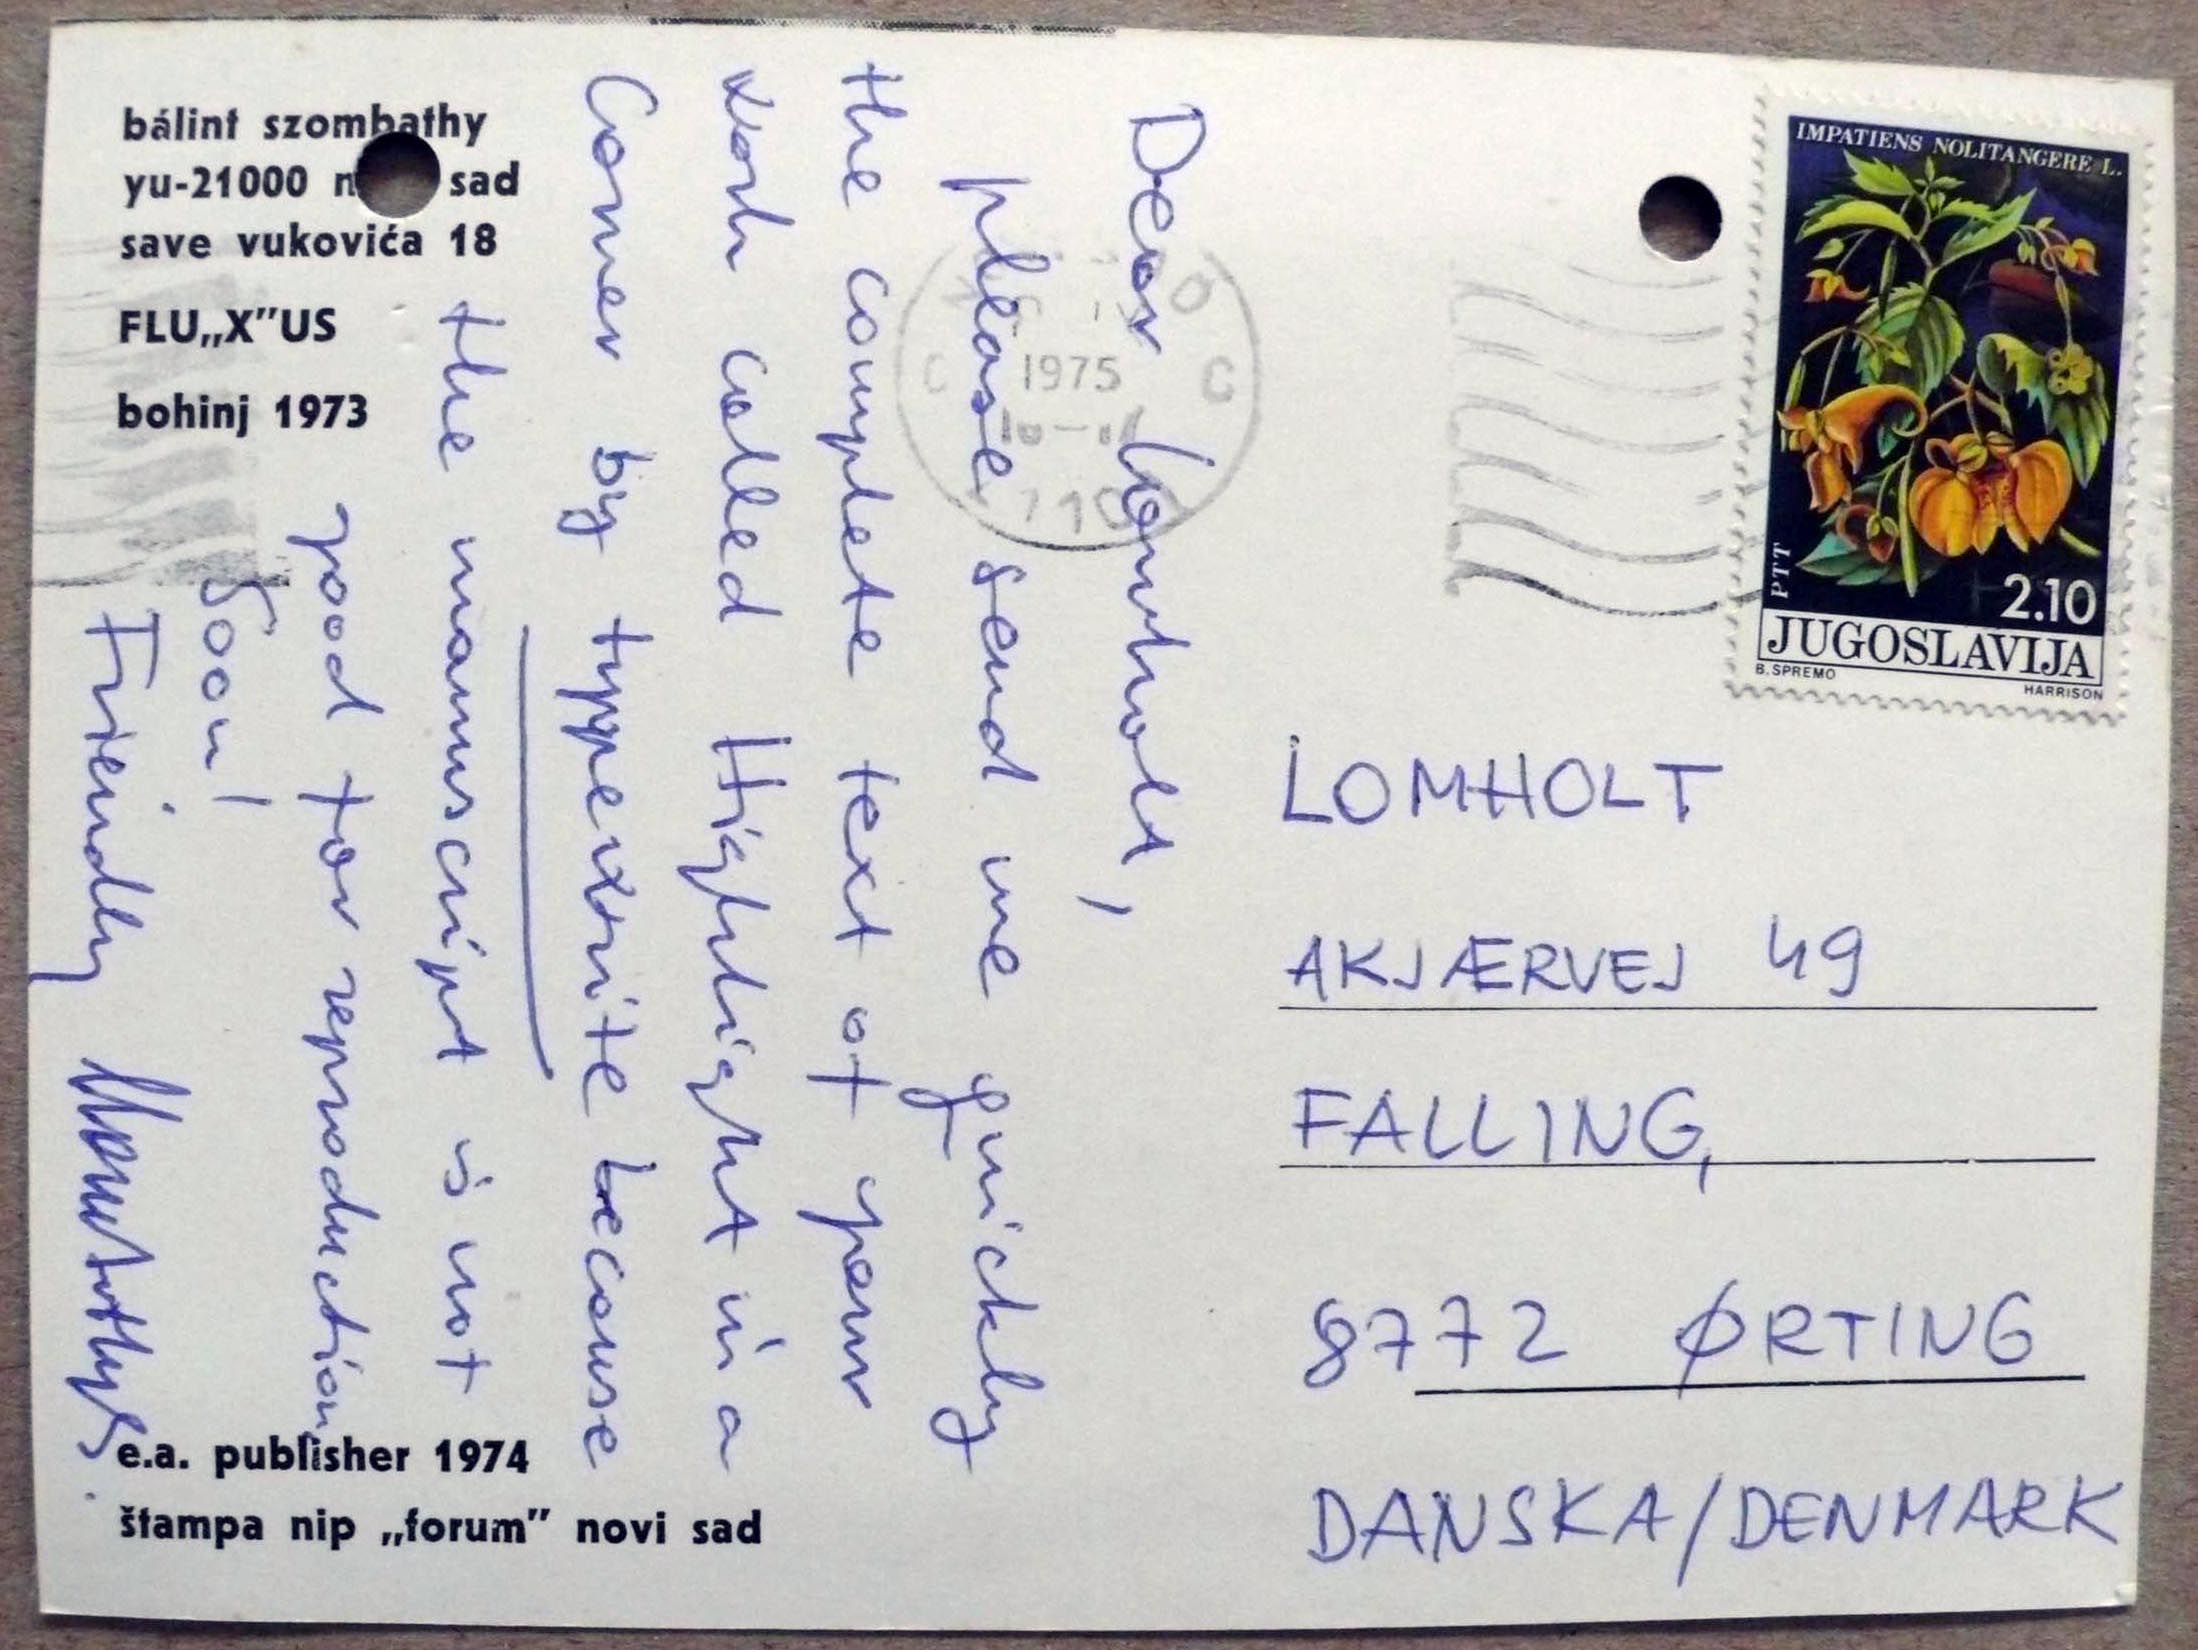 bálint szombathy
yu-21000 n sad
save vukovića 18
FLU„X”US
bohinj 1973
Dear Lomholt,
please send me quickly
the complete text of your
work called Highlight in a
Corner by typewrite because
the manuscript is not
good for reproduction
Soon!
Friendly
e.a. publisher 1974
štampa nip „forum” novi sad
1975
IMPATIENS NOLITANGERE L.
PTT
2.10
JUGOSLAVIJA
B. SPREMO
HARRISON
LOMHOLT
AKJÆRVEJ 49
FALLING,
8772 ØRTING
DANSKA/DENMARK